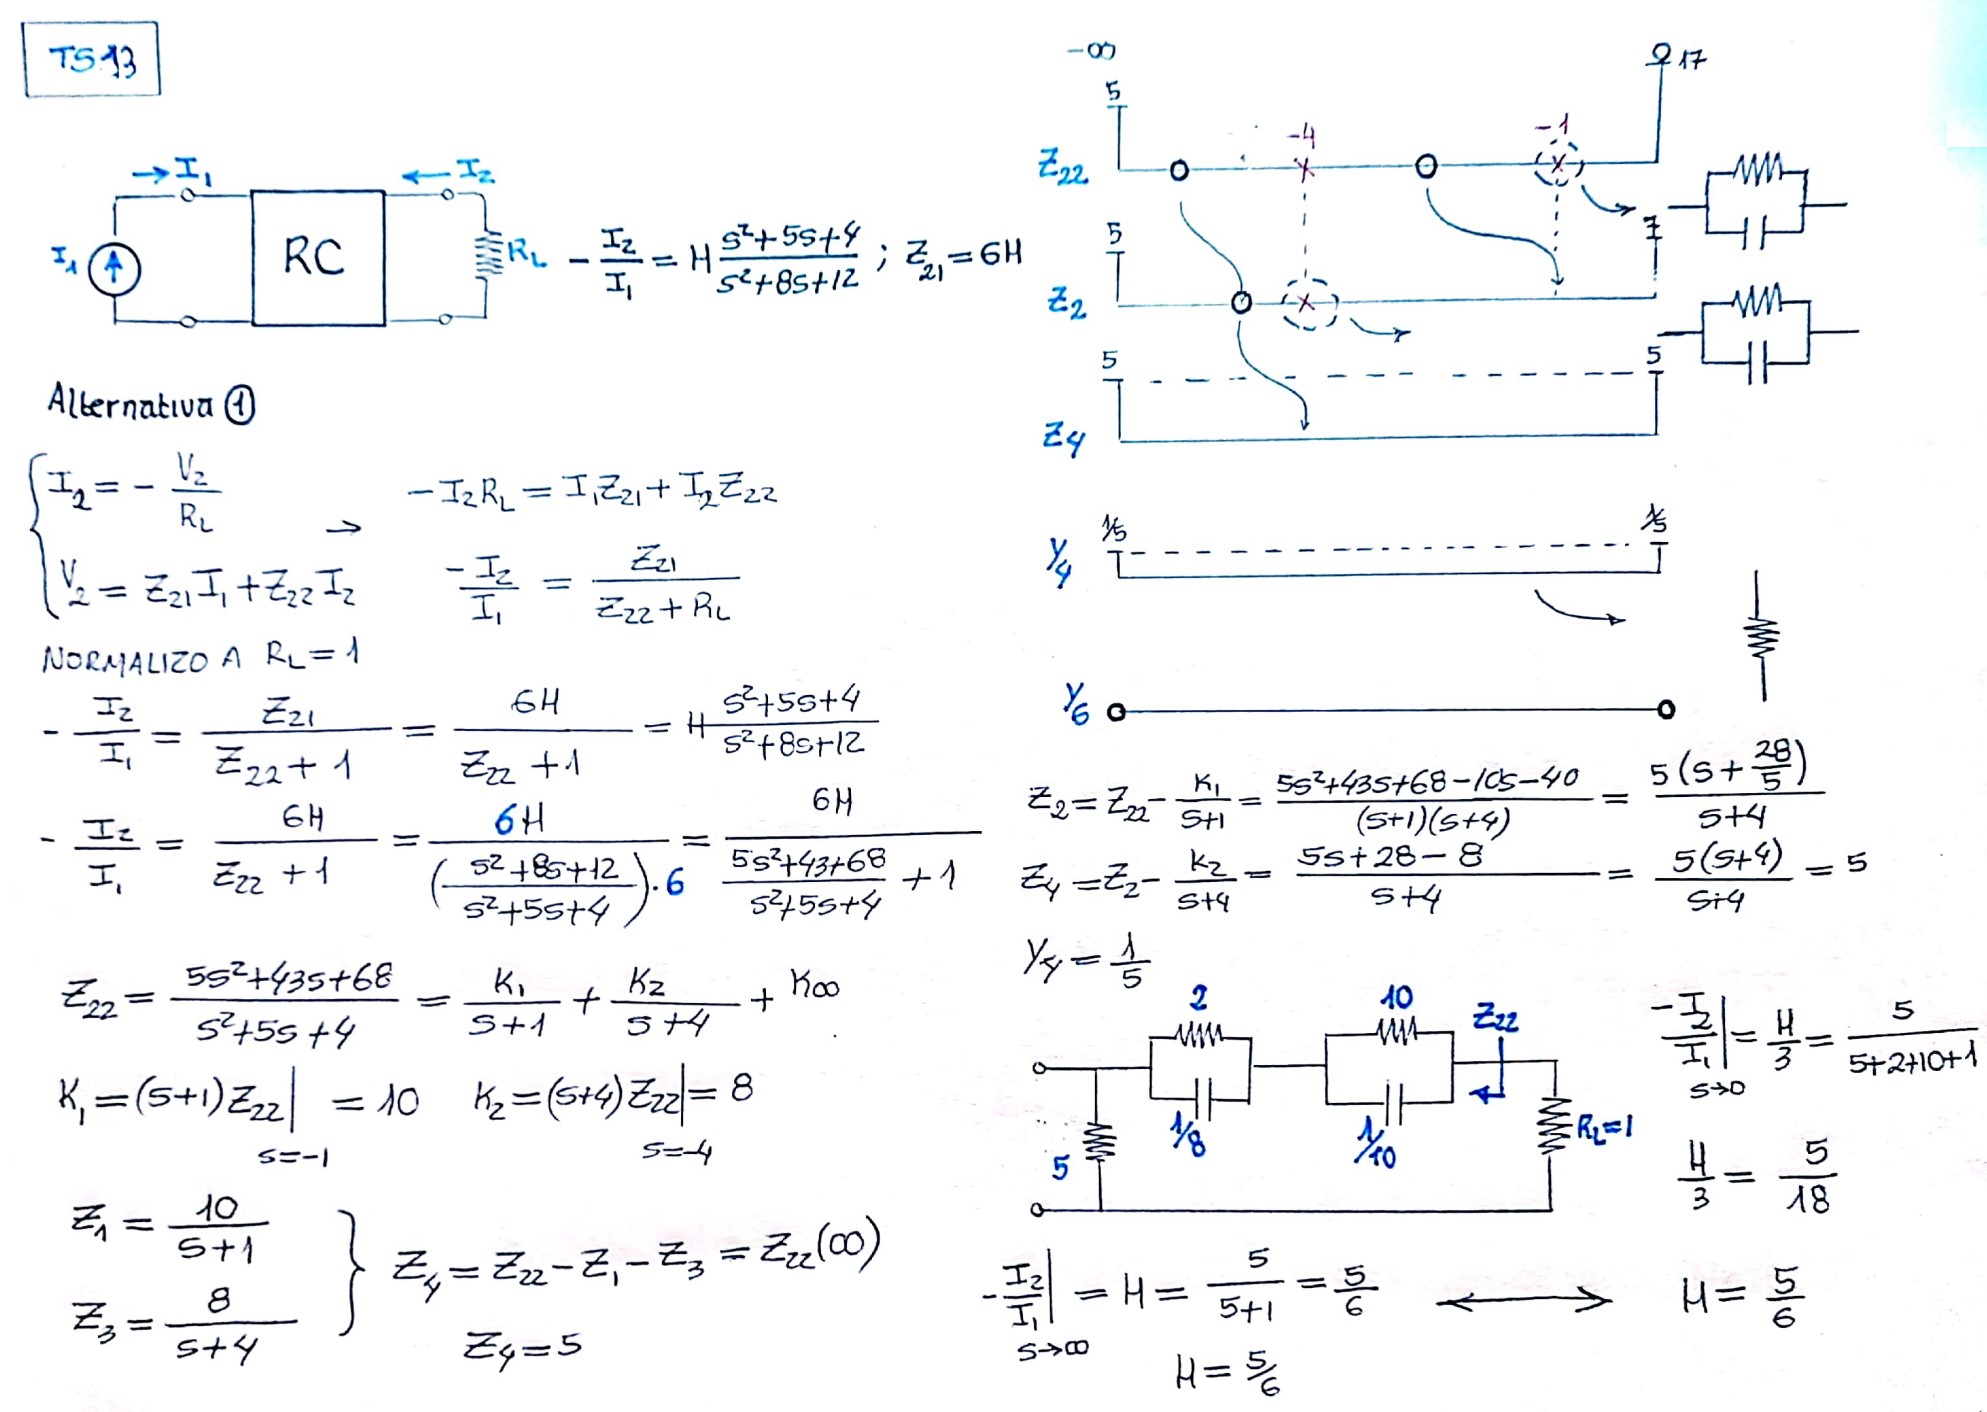 TS.13
→ I₁
← I₂
I₁
RC
R_L
-I₂/I₁ = H (s²+5s+4)/(s²+8s+12) ; Z₂₁ = 6H
Alternativa ①
I₂ = - V₂/R_L
→
V₂ = Z₂₁I₁ + Z₂₂I₂
-I₂R_L = I₁Z₂₁ + I₂Z₂₂
-I₂/I₁ = Z₂₁/(Z₂₂ + R_L)
NORMALIZO A R_L = 1
-I₂/I₁ = Z₂₁/(Z₂₂ + 1) = 6H/(Z₂₂ + 1) = H (s²+5s+4)/(s²+8s+12)
-I₂/I₁ = 6H/(Z₂₂ + 1) = 6H/(((s²+8s+12)/(s²+5s+4)).6) = 6H/((5s²+43+68)/(s²+5s+4) + 1)
Z₂₂ = (5s²+43s+68)/(s²+5s+4) = K₁/(s+1) + K₂/(s+4) + K∞
K₁ = (s+1)Z₂₂|s=-1 = 10 K₂ = (s+4)Z₂₂|s=-4 = 8
Z₁ = 10/(s+1)
Z₃ = 8/(s+4)
Z₄ = Z₂₂ - Z₁ - Z₃ = Z₂₂(∞)
Z₄ = 5
-∞
5
-4
-1
17
Z₂₂
5
7
Z₂
5
5
Z₄
1/5
1/5
Y₄
Y₆
Z₂ = Z₂₂ - K₁/(s+1) = (5s²+43s+68-10s-40)/((s+1)(s+4)) = 5(s + 28/5)/(s+4)
Z₄ = Z₂ - K₂/(s+4) = (5s+28-8)/(s+4) = 5(s+4)/(s+4) = 5
Y₄ = 1/5
2
10
Z₂₂
1/8
1/10
5
R_L=1
-I₂/I₁|s→0 = H/3 = 5/(5+2+10+1)
H/3 = 5/18
-I₂/I₁|s→∞ = H = 5/(5+1) = 5/6 ⟷ H = 5/6
H = 5/6